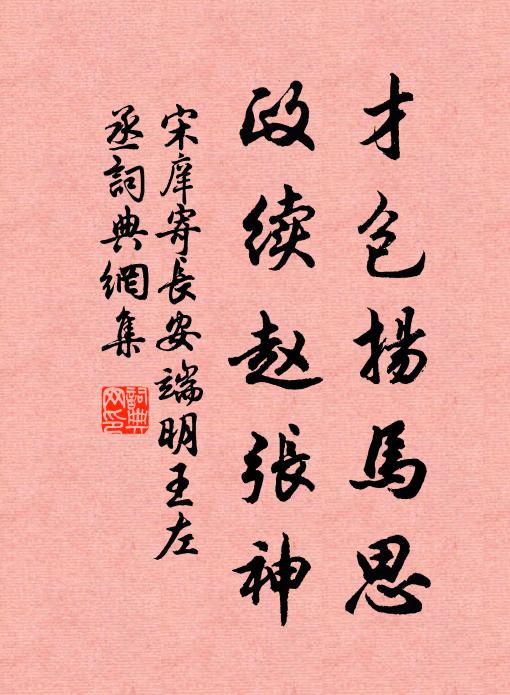 才包揚馬思
政續赵張神
宋庠寄長安端明王左
丞詞典網集
詞典
网印